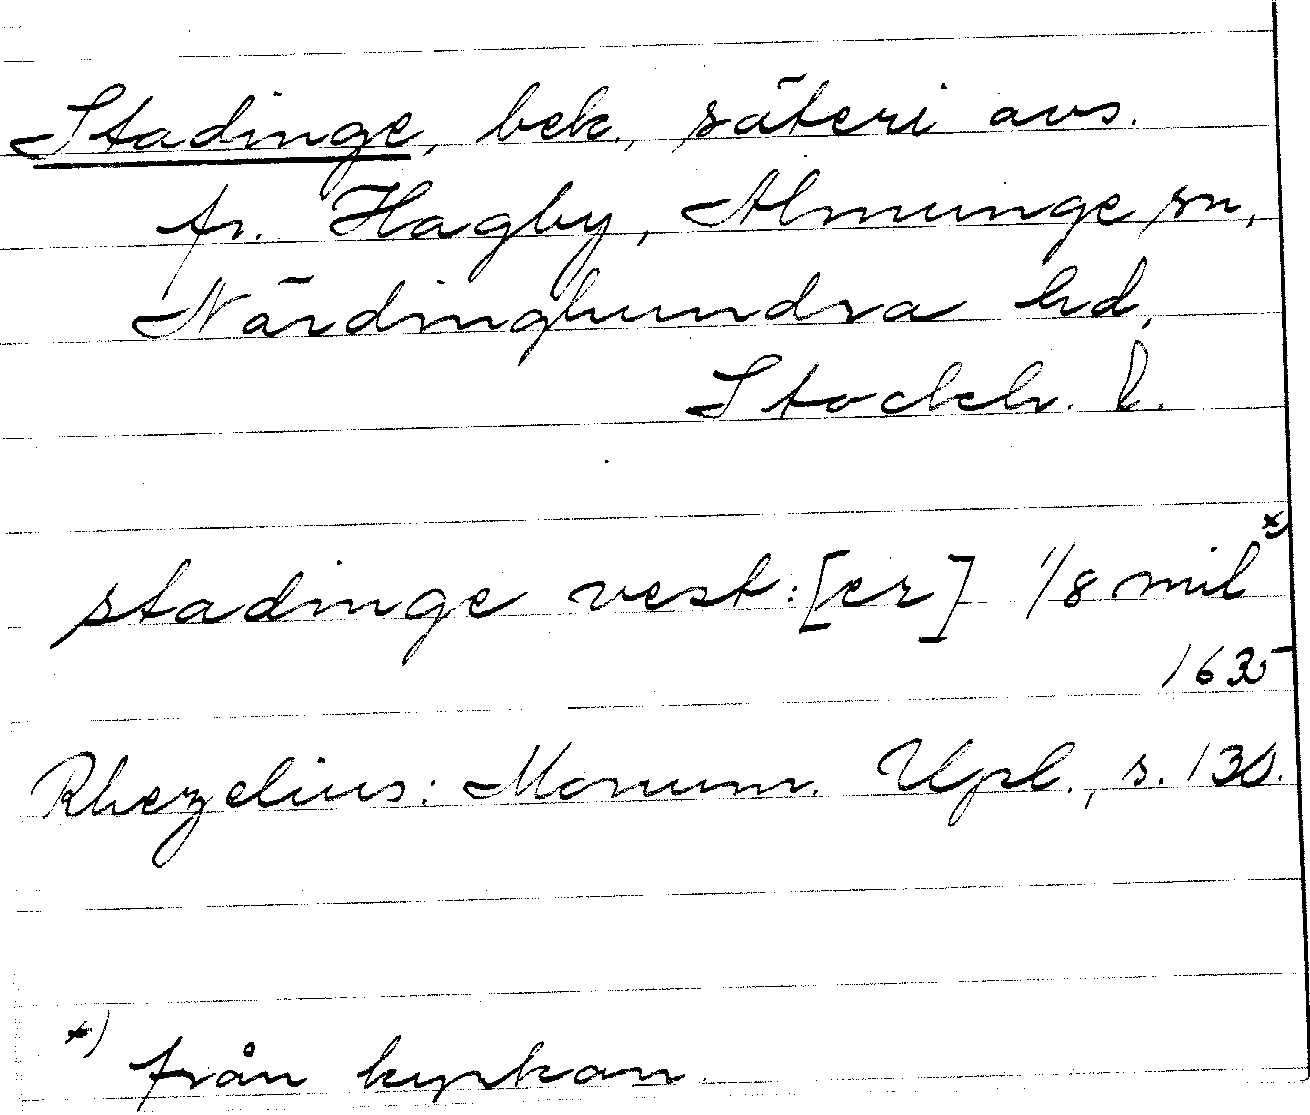 Stadinge, bek., säteri avs.
fr. Hagby, Almunge sn,
Närdinghundra hd,
Stockh. l.
stadinge vest:[er] 1/8 mil x)
1635
Rhezelius: Monum. Upl., s. 130.
x) från kyrkan